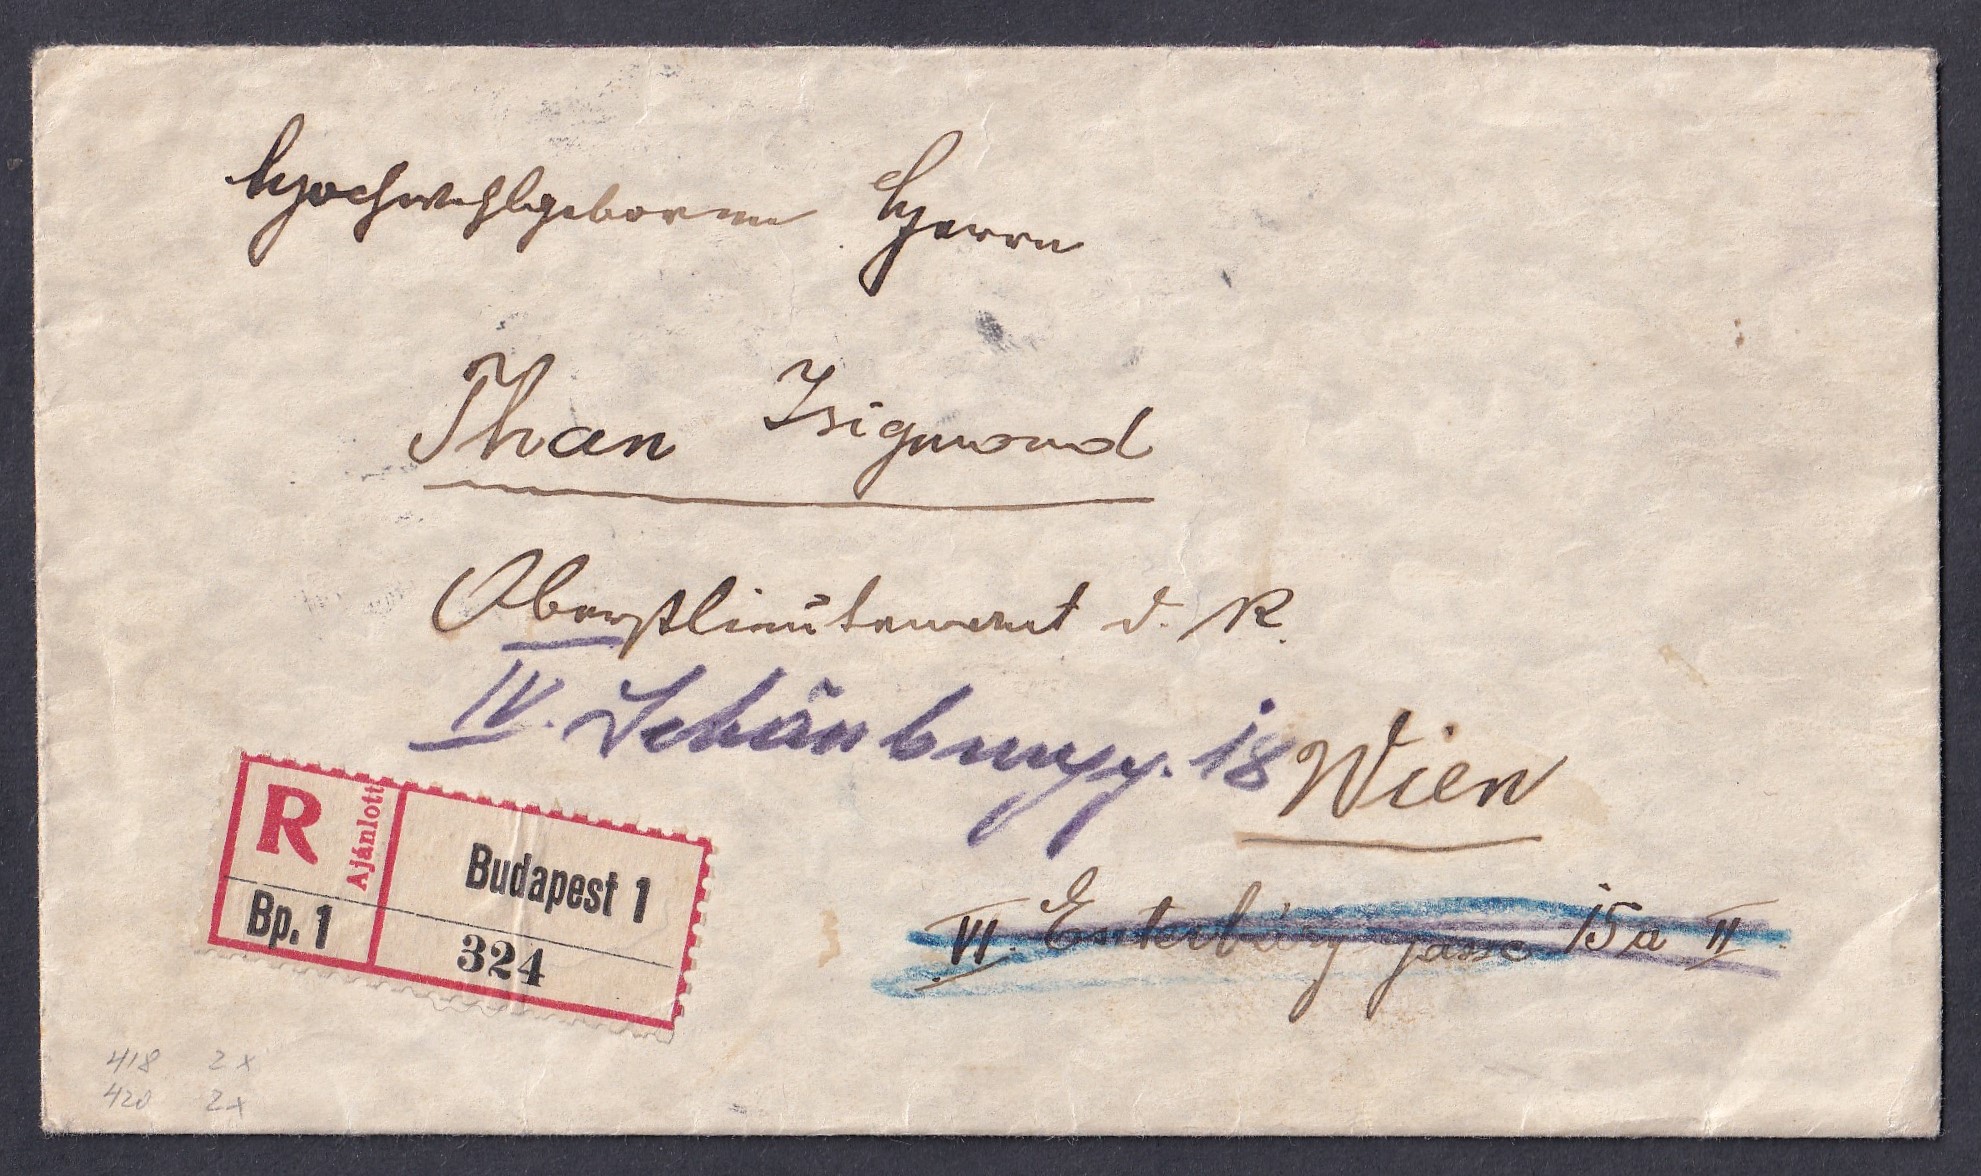 Hochwohlgeborenen Herrn
Than Zsigmond
Oberstlieutenant d. R.
IV. Schönburgg. 18 Wien
VI. Esterházy gasse 15 a II.
R Ajánlott
Budapest 1
Bp. 1
324
418 2x
420 2x